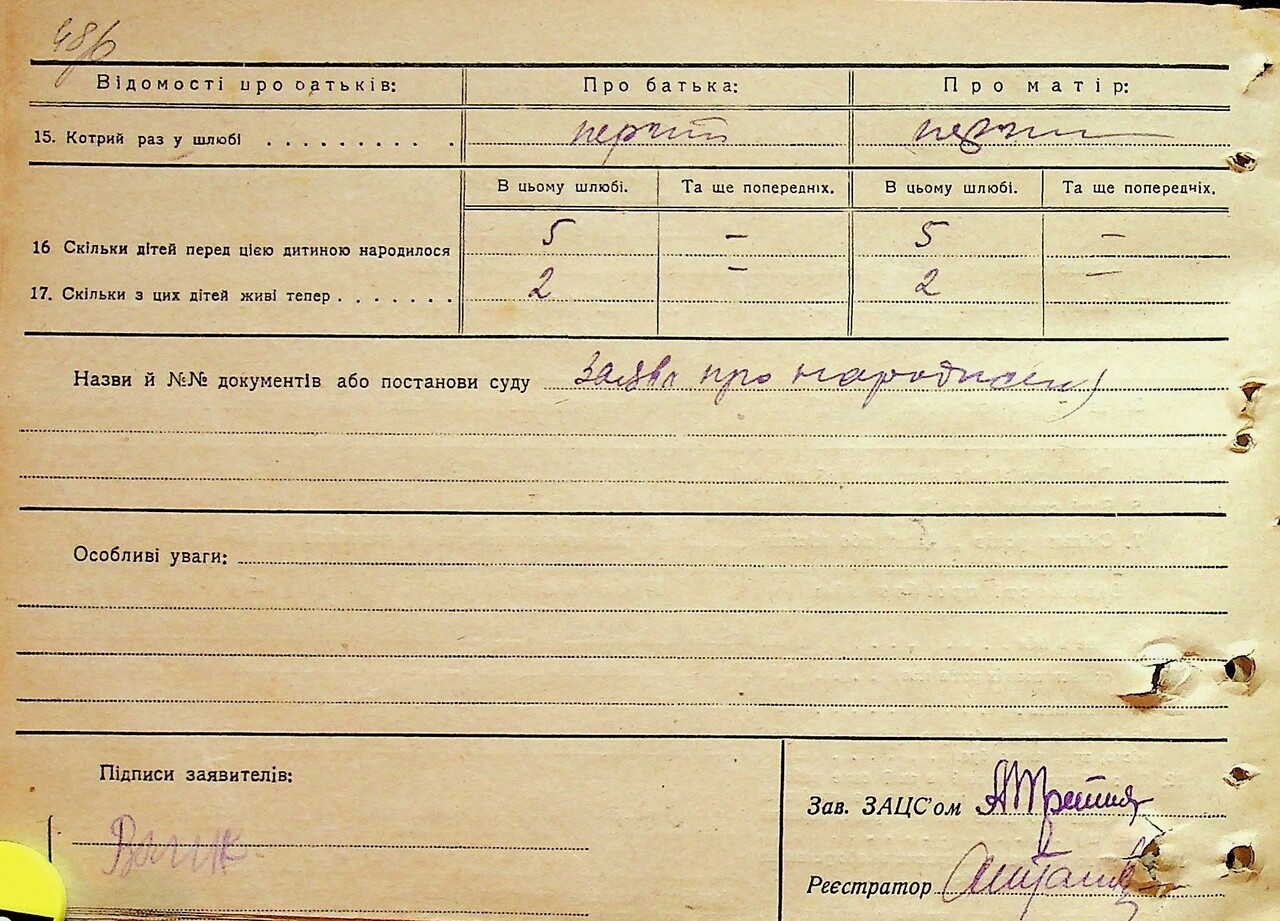 Відомості про батьків: Про батька: Про матір:
15. Котрий раз у шлюбі . . . . . . . . . . перший перший
В цьому шлюбі. Та ще попередніх. В цьому шлюбі. Та ще попередніх.
16 Скільки дітей перед цією дитиною народилося 5 – 5 –
17. Скільки з цих дітей живі тепер . . . . . . . 2 – 2 –
Назви й №№ документів або постанови суду Заява про
Особливі уваги:
Підписи заявителів:
Зав. ЗАЦС'ом
Реєстратор